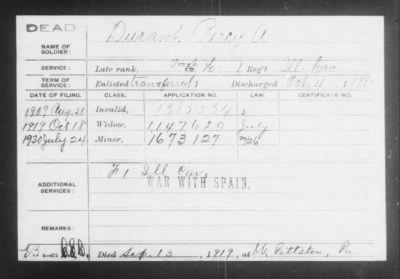 DEAD
NAME OF SOLDIER: Durant, Percy A.
SERVICE: Late rank, H, 1 Reg't Ill. Cav.
TERM OF SERVICE: Enlisted transferred Discharged Oct. 11, 1898
DATE OF FILING. CLASS. APPLICATION NO. LAW. CERTIFICATE NO.
1909 Aug. 21 Invalid,
1919 Oct 18 Widow, 1147620 July
1930 July 24 Minor, 1673127
ADDITIONAL SERVICES: F, 1 Ill Cav.
WAR WITH SPAIN.
REMARKS:
Died Sep. 13, 1919, at W. Pittston, Pa.